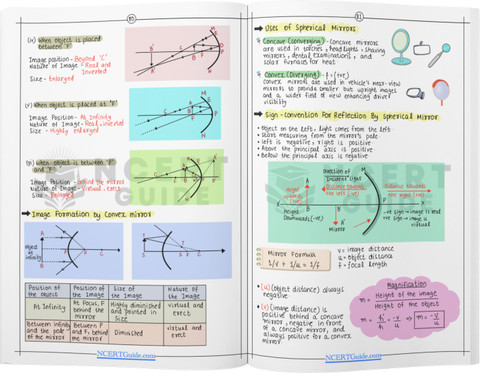 80
(iv) When object is placed
between 'F'
Image position - Beyond 'C'
Nature of Image - Real and
Inverted
Size - Enlarged
(v) When object is placed at 'F'
Image Position - At Infinity
Nature of Image - Real, inverted
Size - Highly enlarged
when object is between 'F'
and 'P'
Image Position - behind the mirror
Nature of Image - Virtual, erect
Size - Enlarged
Image Formation by Convex mirror
object
at
infinity
Position of the object
Position of the Image
Size of the Image
Nature of the Image
At Infinity
At focus, F behind the mirror
Highly diminished and pointed in Size
virtual and erect
Between infinity and the pole of the mirror
Between P and F, behind the mirror
Diminished
virtual and erect
NCERTGuide.com
81
Uses of Spherical Mirrors
Concave (converging) - Concave mirrors
are used in torches, headlights, shaving
mirrors, dental examinations, and
solar furnaces for heat
Convex (Diverging) - f = (+ve)
convex mirrors are used in vehicle's rear-view
mirrors to provide smaller but upright images
and a wider field of view enhancing driver
visibility
Sign-convention For Reflection By Spherical Mirror
• object on the left, light comes from the left
• start measuring from the mirror's pole
• left is negative, right is positive
• Above the principal axis is positive
• Below the principal axis is negative
NCERT
GUIDE
Direction of
Incident light
Distance towards
the left (-ve)
Distance towards
the right (+ve)
Height
upwards
(+ve)
Height
Downwards (-ve)
Mirror
-ve sign → image is real
+ve sign → image is
virtual
Mirror Formula
1/v + 1/u = 1/f
v = image distance
u = object distance
f = focal length
• (u) (object distance) always
negative
• (v) (image distance) is
positive behind a concave
mirror, negative in front
of a concave mirror, and
always positive for a convex
mirror
Magnification
m = Height of the image
Height of the object
m = h'/h = -v/u ⇒ m = -v/u
NCERTGuide.com